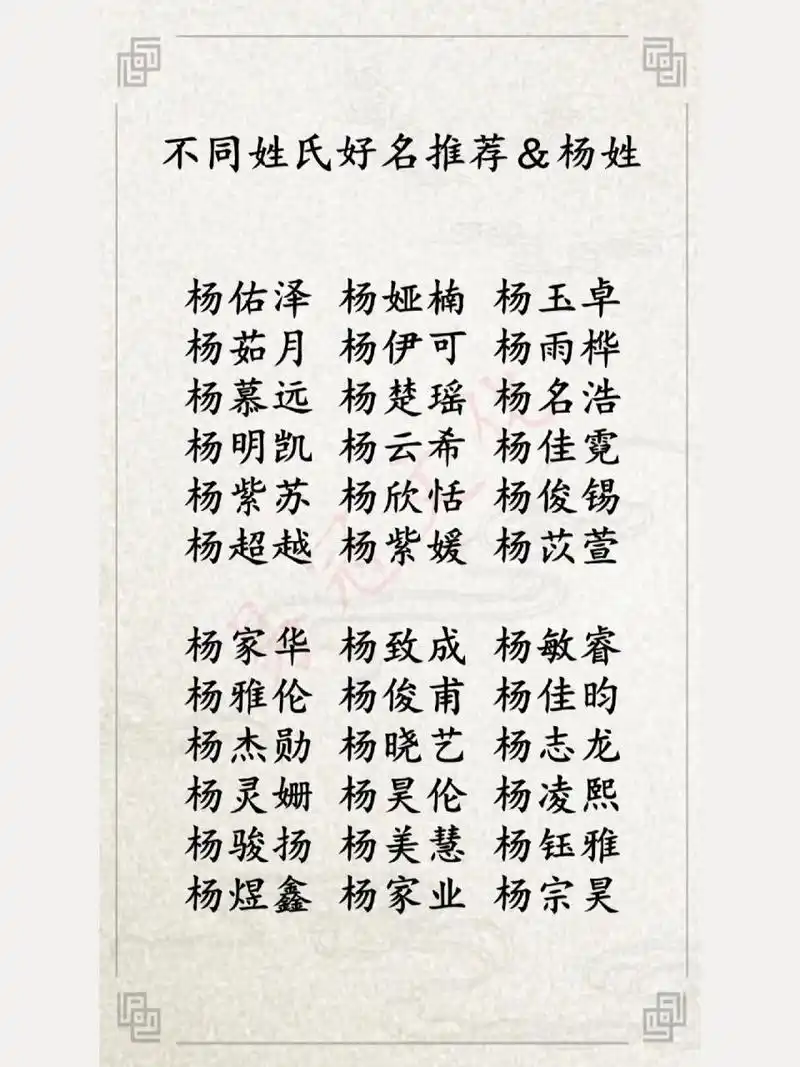 不同姓氏好名推荐&杨姓
杨佑泽 杨娅楠 杨玉卓
杨茹月 杨伊可 杨雨桦
杨慕远 杨楚瑶 杨名浩
杨明凯 杨云希 杨佳霓
杨紫苏 杨欣恬 杨俊锡
杨超越 杨紫媛 杨苡萱
杨家华 杨致成 杨敏睿
杨雅伦 杨俊甫 杨佳昀
杨杰勋 杨晓艺 杨志龙
杨灵姗 杨昊伦 杨凌熙
杨骏扬 杨美慧 杨钰雅
杨煜鑫 杨家业 杨宗昊